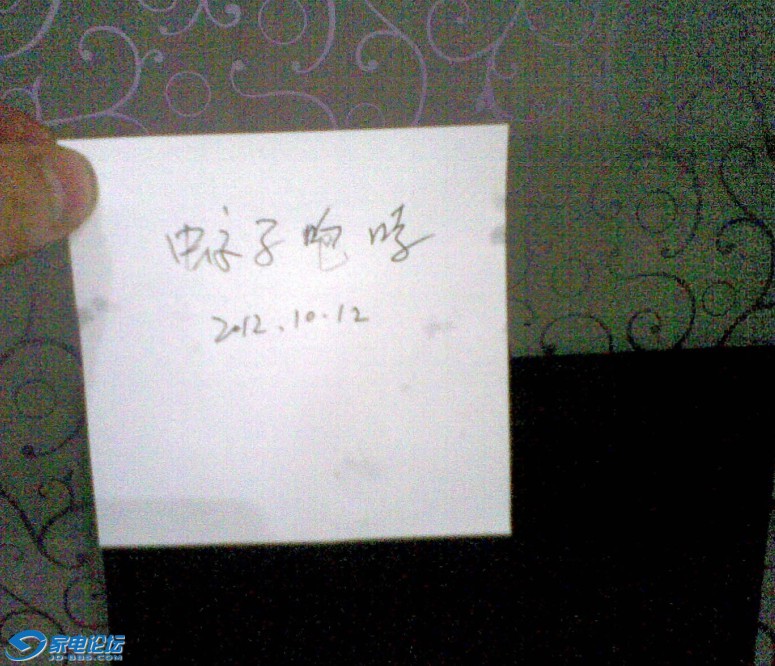 蚊子咆哮
2012.10.12
家电论坛
JD-BBS.COM